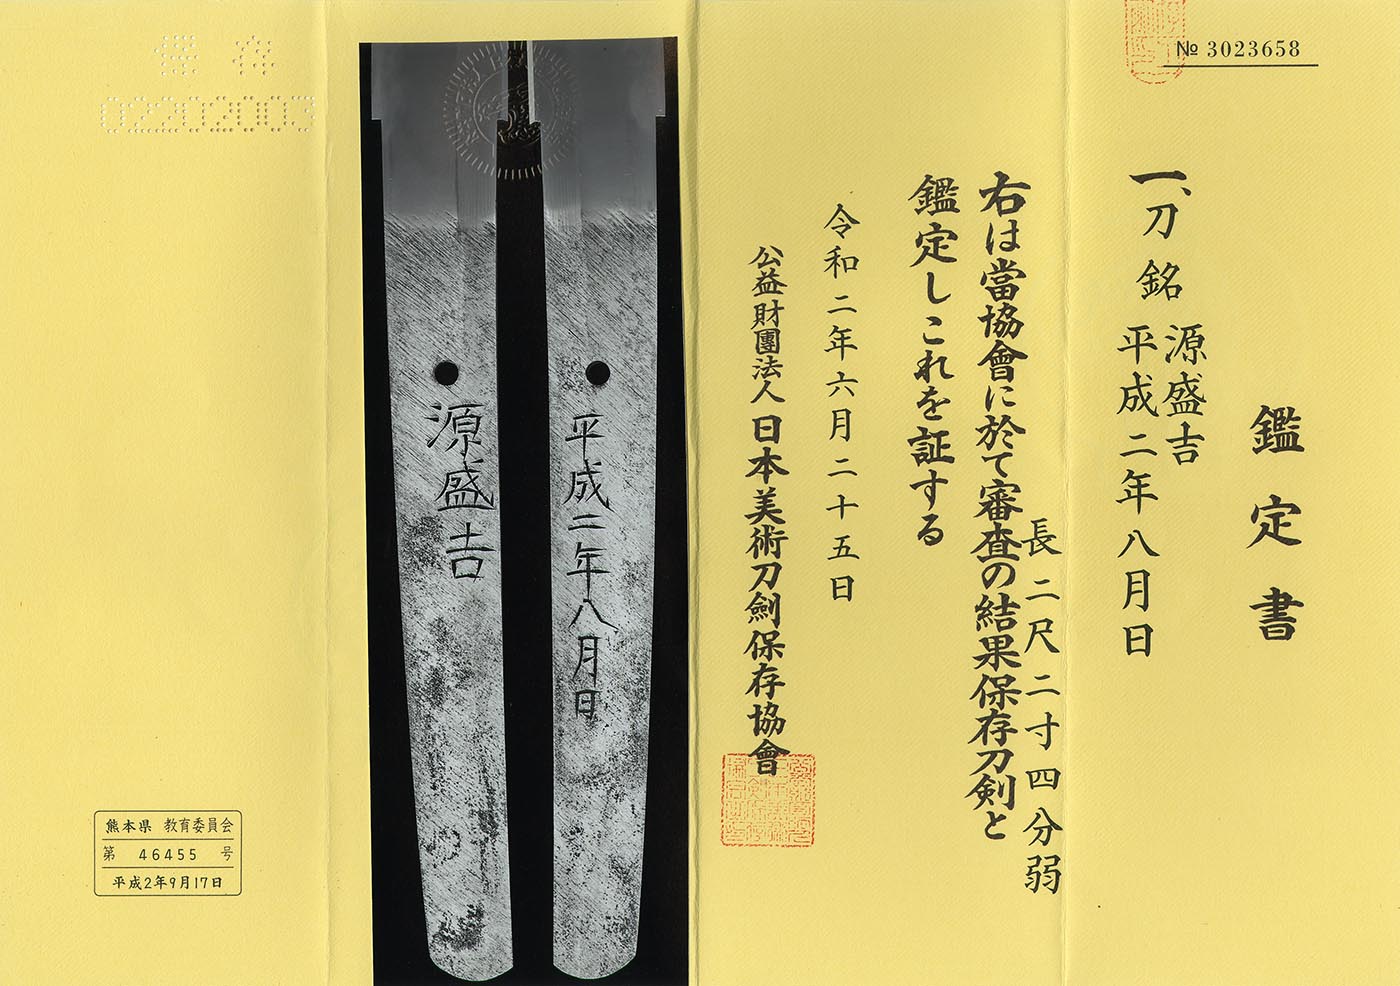 № 3023658
鑑定書
一、刀 銘 源盛吉
平成二年八月日
長二尺二寸四分弱
右は當協會に於て審査の結果保存刀剣と
鑑定しこれを証する
令和二年六月二十五日
公益財團法人 日本美術刀劍保存協會
平成二年八月日
源盛吉
保存
02202003
熊本県 教育委員会
第 46455 号
平成2年9月17日